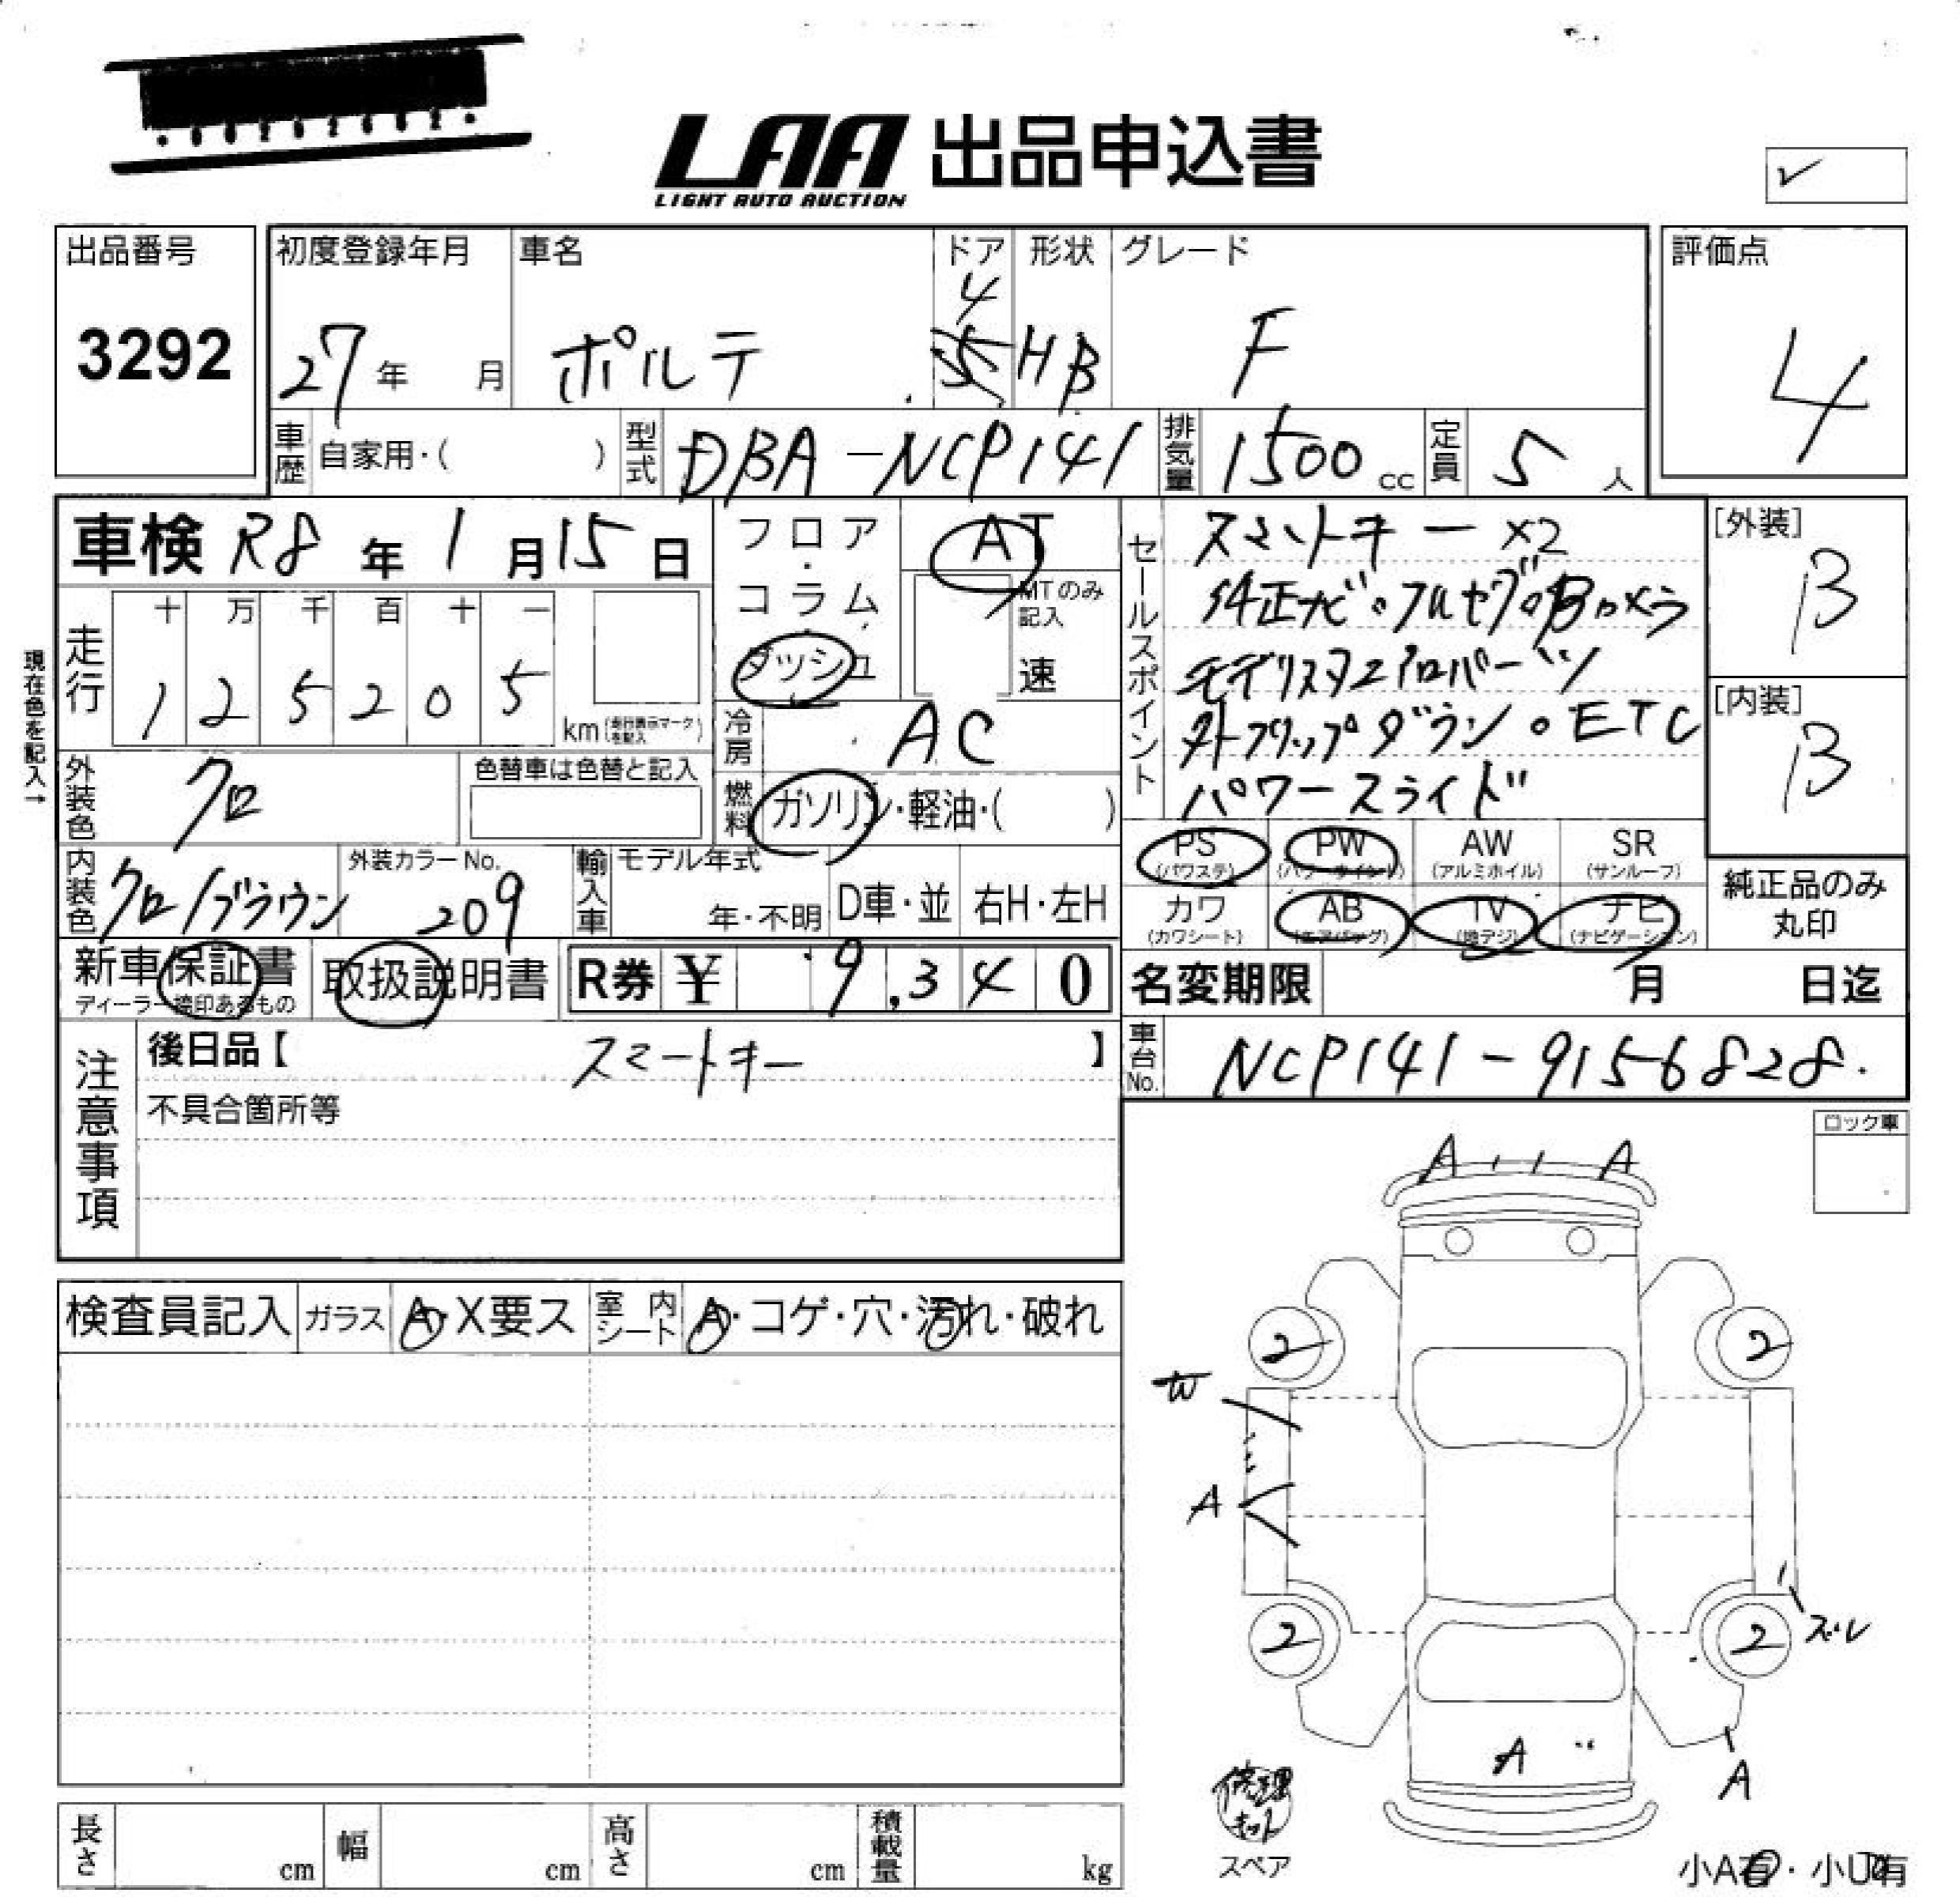 LAA 出品申込書
LIGHT AUTO AUCTION
出品番号 初度登録年月 車名 ドア 形状 グレード 評価点
3292 27年 月 ポルテ 4 5 HB F 4
車歴 自家用・( ) 型式 DBA-NCP141 排気量 1500cc 定員 5人
車検 R8年1月15日
フロア・コラム・ダッシュ
AT
MTのみ記入
速
セールスポイント
スマートキー×2
純正ナビ・フルセグ・Bカメラ
モデリスタエアロパーツ
外フリップダウン・ETC
パワースライド
[外装]
B
[内装]
B
現在色を記入→
走行 十万千百十一
125205 km(走行表示マークを記入)
冷房 AC
外装色 クロ 色替車は色替と記入
燃料 ガソリン・軽油・( )
内装色 クロ/ブラウン 外装カラーNo. 209
輸入車 モデル年式 年・不明 D車・並 右H・左H
PS (パワステ) PW (パワーウインド) AW (アルミホイル) SR (サンルーフ)
カワ (カワシート) AB (エアバッグ) TV (地デジ) ナビ (ナビゲーション)
純正品のみ丸印
新車保証書 ディーラー捺印あるもの 取扱説明書 R券 ¥ 9,340
名変期限 月 日迄
注意事項
後日品【 スマートキー 】
車台No. NCP141-9156828.
不具合箇所等
ロック車
A A
検査員記入 ガラス A・X要ス 室内シート A・コゲ・穴・汚れ・破れ
2 2
W
A
2 2 ズレ
A A
修理キット
スペア
長さ cm 幅 cm 高さ cm 積載量 kg
小A有・小U有